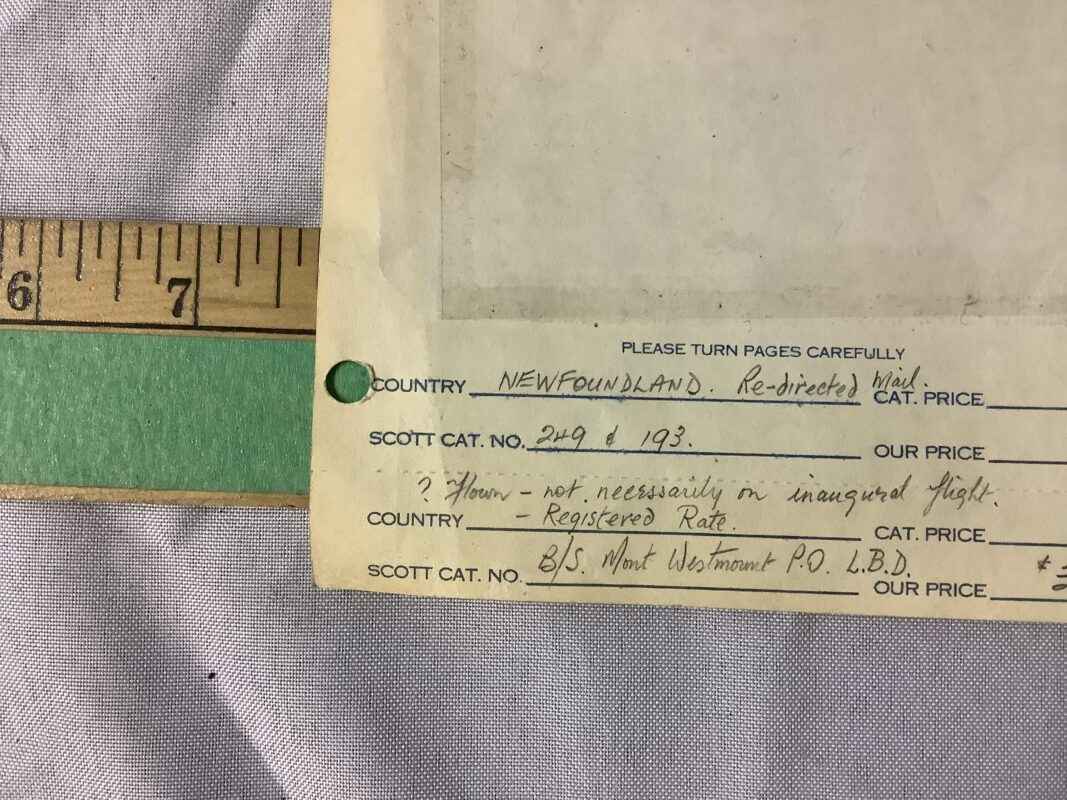 6 7
PLEASE TURN PAGES CAREFULLY
COUNTRY NEWFOUNDLAND. Re-directed Mail. CAT. PRICE
SCOTT CAT. NO. 249 & 193. OUR PRICE
? Flown - not necessarily on inaugural flight.
COUNTRY - Registered Rate. CAT. PRICE
SCOTT CAT. NO. B/S. Mont Westmount P.O. L.B.D. OUR PRICE $